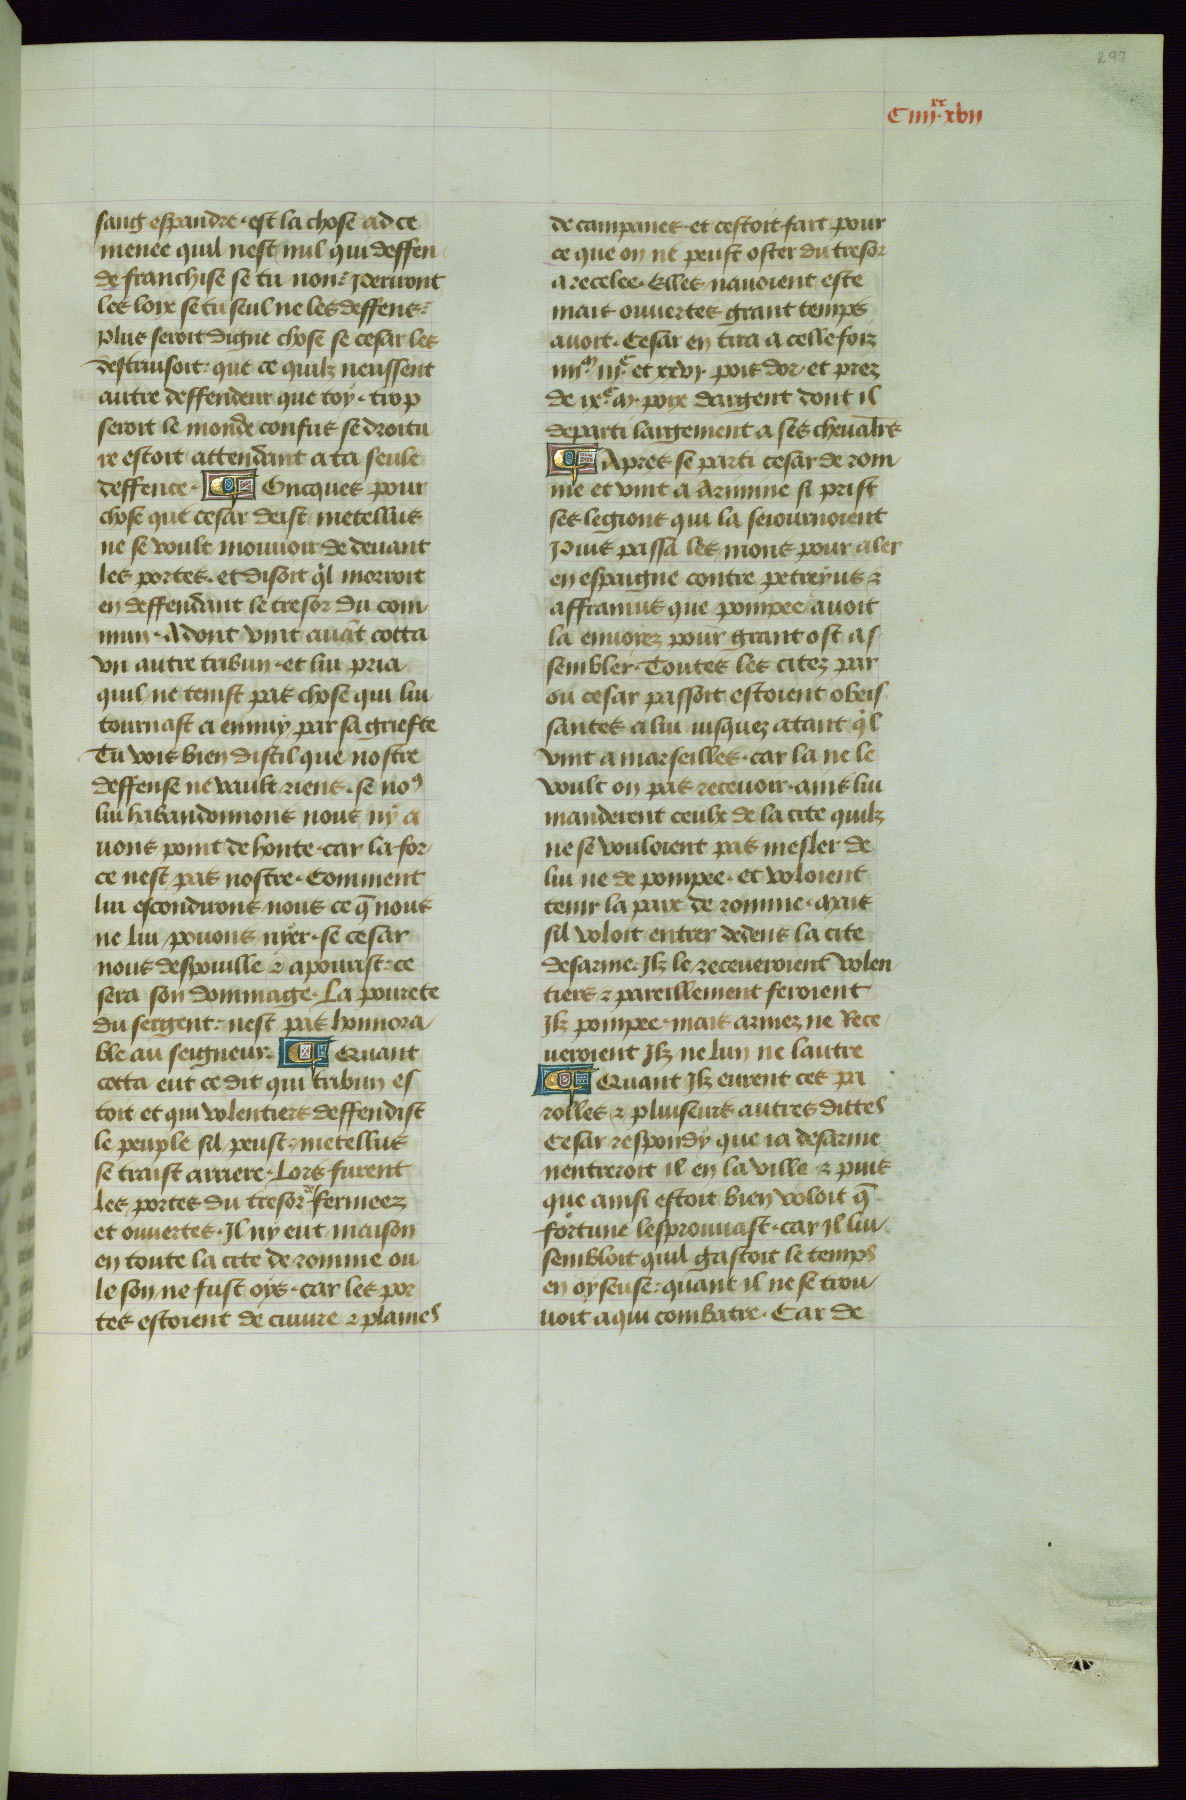 297
C iiii xx. xvii
sang espandre. est la chose ad ce
menee quil nest nul qui deffen
de franchise se tu non. Periront
les loix se tu seul ne les deffens.
Plus seroit digne chose se cesar les
destruisoit. que ce quilz neussent
autre deffendeur que toy. trop
seroit le monde confus se droitu
re estoit attendant a ta seule
deffence. Oncques pour
chose que cesar deist metellus
ne se voult mouvoir de devant
les portes. et disoit ql morroit
en deffendant le tresor du com
mun. Adont vint avat cotta
vn autre tribun. et lui pria
quil ne tenist pas chose qui lui
tournast a ennuy par sa griefte
Tu vois bien dist il que nostre
deffense ne vault riens. se no9
lui habandonnons nous ny a
vons point de honte. car la for
ce nest pas nostre. Comment
lui escondirons nous ce q nous
ne lui povons nyer. se cesar
nous despouille & apovrist. ce
sera son dommage. La povrete
du sergent. nest pas honnora
ble au seigneur. Quant
cotta eut ce dit qui tribun es
toit et qui volentiers deffendist
le peuple sil peust. metellus
se traist arriere. Lors furent
les portes du tresor deffermeez
et ouvertes. Il ny eut maison
en toute la cite de romme ou
le son ne fust oys. car les por
tes estoient de cuivre & plaines
de campanes. et cestoit fait pour
ce que on ne peust oster du tresor
a recelee. Elles navoient este
mais ouvertes grant temps
avoit. Cesar en tira a celle foiz
iiii m iii c et xxvi. pois dor. et prez
de ix c m. poix dargent dont il
departi largement a ses chevalrs
Apres se parti cesar de rom
me et vint a arimine si prist
ses legions qui la seiournoient
Puis passa les mons pour aler
en espaigne contre petreyus &
affranius que pompee avoit
la envoiez pour grant ost as
sembler. Toutes les citez par
ou cesar passoit estoient obeis
santes a lui iusquez atant ql
vint a marseilles. car la ne le
voult on pas recevoir. ains lui
manderent ceulx de la cite quilz
ne se vouloient pas mesler de
lui ne de pompee. et voloient
tenir la paix de romme. mais
sil voloit entrer dedens la cite
desarme. Ilz le receveroient volen
tiers & pareillement feroient
Ilz pompee. mais armez ne Rece
veroient Ilz ne lun ne lautre
Quant Ilz eurent ces pa
rolles & pluiseurs autres dittes
Cesar respondy que ia desarme
nentreroit il en la ville & puis
que ainsi estoit bien voloit q
fortune lesprouvast. car Il lui
sembloit quil gastoit le temps
en oyseuse. quant il ne se trou
voit a qui combatre. Car de